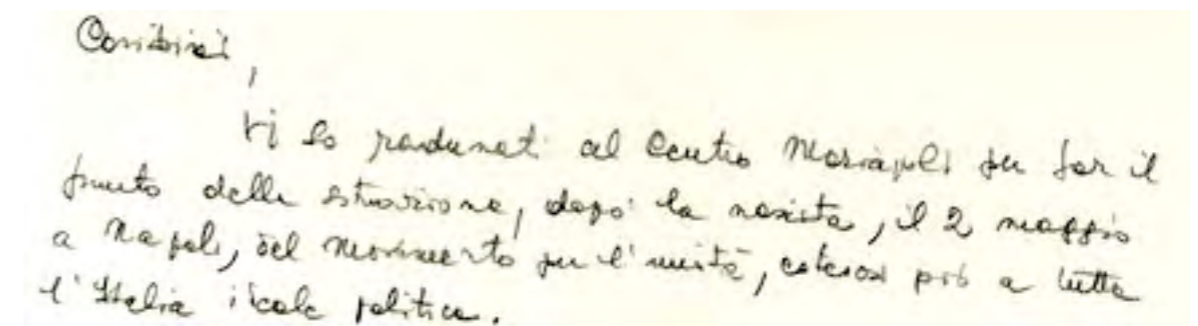 Carissimi,
vi so radunati al Centro Mariapoli per far il
punto della situazione, dopo la nascita, il 2 maggio
a Napoli, del Movimento per l'unità, estesosi poi a tutta
l'Italia politica.